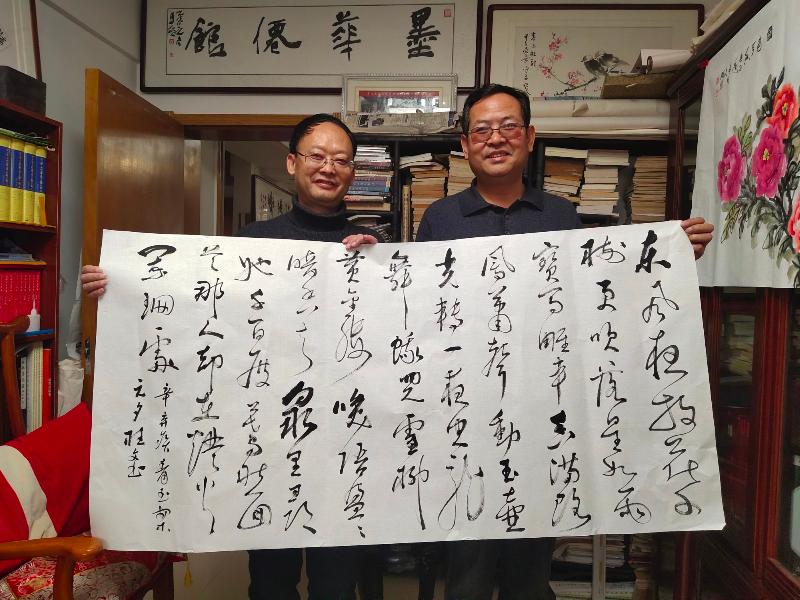 墨華僊館
东风夜放花千
樹更吹落星如雨
寶馬雕車香满路
鳳簫聲動玉壺
光轉一夜魚龍
舞蛾兒雪柳
黄金縷笑語盈盈
暗香去眾里尋
他千百度蓦然回
首那人却在燈火
阑珊處
辛弃疾青玉案
元夕